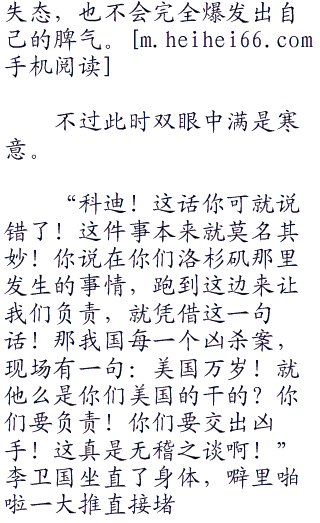 失态，也不会完全爆发出自
己的脾气。[m.heihei66.com
手机阅读]
不过此时双眼中满是寒
意。
“科迪！这话你可就说
错了！这件事本来就莫名其
妙！你说在你们洛杉矶那里
发生的事情，跑到这边来让
我们负责，就凭借这一句
话！那我国每一个凶杀案，
现场有一句：美国万岁！就
他么是你们美国的干的？你
们要负责！你们要交出凶
手！这真是无稽之谈啊！”
李卫国坐直了身体，噼里啪
啦一大推直接堵